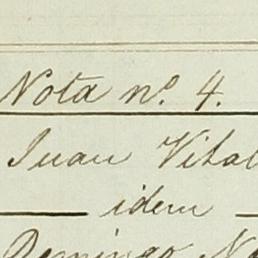 Nota nº. 4.
Juan Vital
idem
Domingo